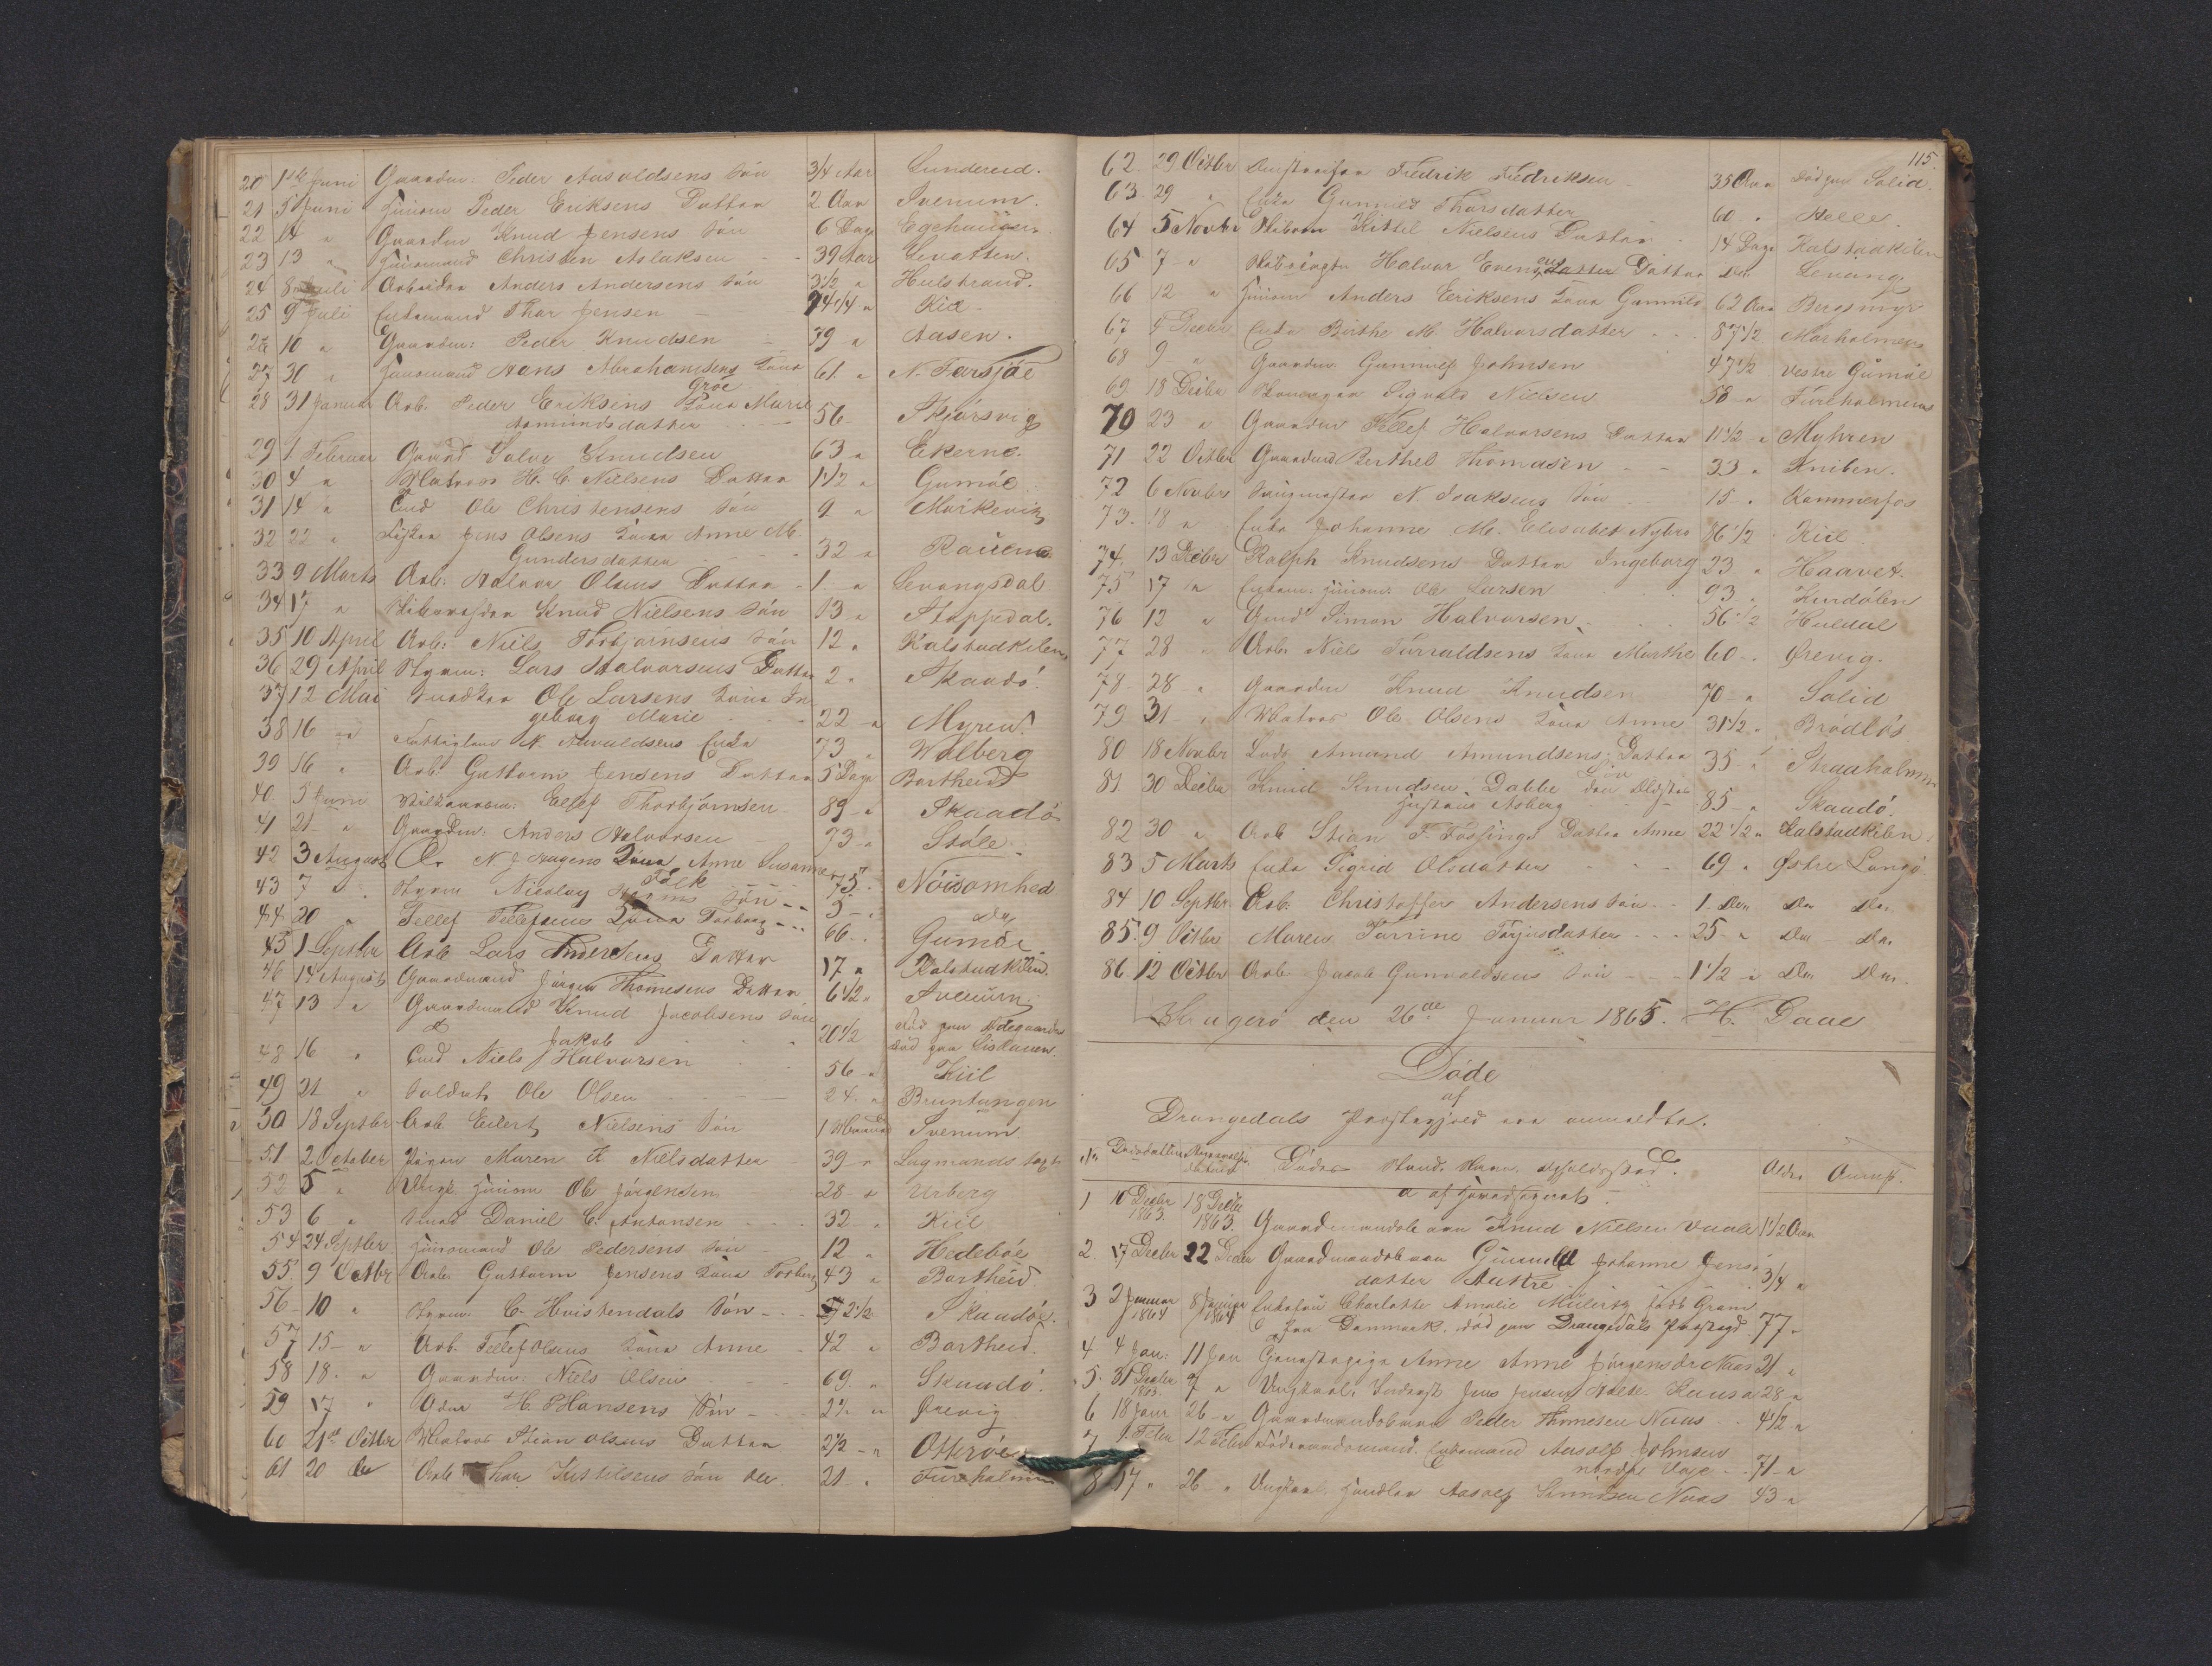 20 1ste Juni Gaardm: Peder Aasoldsens Søn 3/4 Aar Lundereid.
21 5 Juni Huusm Peder Eriksens Datter 2 Aar Svenum.
22 14 " Gaardm Knud Jensens Søn 6 Dage
23 13 " Huusmand Christen Aslaksen - - 39 Aar Levatten.
24 8 Juli Arbeider Anders Andersens Søn 3 1/2 "
25 9 Juli Enkemand Thor Jensen - 74 1/4 " Kiil
26 10 " Gaardm: Peder Knudsen - 39 " Aasen.
27 30 " Huusmand Hans Abrahamsens Kone 61. " N. Farsjøe
Groe
28 31 Januar Arb. Peder Eriksens Kone Marie 56 Skjørsvig
Asmundsdatter
29 1 Februar Gaard Salve Knudsen 63 " Ekerne.
30 4 " Matros H. C. Nielsens Datter 1 1/2 " Gumøe
31 14 " Ole Christensens Søn 9 "
32 22 " Jens Olsens Kone Anne M. 32 "
Gundersdatter
33 9 Marts Arb: Halvor Olsens Datter - 1 " Levangsdal
34 17 " Knud Nielsens Søn 13 " Stoppedal.
35 10 April Arb: Niels Thorbjørnsens Søn 12 " Kalstadkilen
36 29 April Styrm: Lars Halvorsens Datter 2 " Skaadø.
37 12 Mai Ole Larsens Kone In
geborg Marie 22 " Myren.
38 16 " N. Aavaldsens Enke 73 " Wolberg
39 16 " Arb. Guttorm Jensens Datter 5 Dage Bartheid
40 5 Juni Ellef Thorbjørnsen 89 " Skaadø
41 21 " Gaardm: Anders Halvorsen 73 " Støle
42 3 August N J Hagens Kone Anne Susanne 75 Nøisomhed
Falk
43 7 " Styrm Nicolay Søn - - 5 - " Do
44 20 " Tellef Tellefsens Kone Torborg - - 66 - Gumøe
45 1 Septbr Arb Lars Andersens Datter 17 " Kalstadkilen.
46 14 August Gaardmand Jørgen Thomesens Datter 6 1/2 " Svenum
47 13 " Gaardmand Knud Jacobsens Søn 20 1/2
Jakob
48 16 " Niels Halvorsen 56 " Kiil
49 21 " Soldat Ole Olsen 24. " Bruntangen
50 18 Septbr Arb Eilert Nielsens Søn 1 Maaned Svenum
51 2 October Pigen Maren A Nielsdatter 39 -
52 5 " Ungk Huusm Ole Jørgensen 28 " Urberg
53 6 " Daniel C. Antonsen 32 " Kiil
54 24 Septbr Huusmand Ole Pedersens Søn 12 " Hedebøe
55 9 Octbr Arb. Guttorm Jensens Kone Torberg 43 " Bartheid
56 10 " Styrm C. Hvistendals Søn - - 2 1/2 Skaadøe.
57 15 - " Arb. Tellef Olsens Kone Anne - 42 " Bartheid.
58 18 . " Gaardm: Niels Olsen 69. " Skaadø.
59 17 " H. P Hansens Søn - Ørevig
60 21de Octbr Matros Stian Olsens Datter 2 1/2 - " Otterøe
61 20 Do Arb Thor Kittilsens Søn 21 .
115
62. 29 Octbr Fredrik Fredriksen 35 Aar død paa Solid.
63. 29 " Enke Gunnild Thorsdatter 60 " Helle.
64 5 Novbr Kittil Nielsens Datter 14 Dage Kalstadkilen
65 7 - " Halvor Evens Datter Do Levang
66 12 " Huusm Anders Eriksens Kone Gunnild 62 Aar Bergsmyr
67 4 Decbr Enke Birthe M. Halvorsdatter . . 87 1/2
68 9 - " Gaardm Gunnulf Johnsen 47 1/2 Vestre Gumøe
69 18 Decbr Sigvald Nielsen 58 " Fureholmene
70 23 " Gaardm Tellef Halvorsens Datter 11 1/2 " Myhren
71 22 Octbr Gaardmd Berthel Thomasen - - 33 " Kniben.
72 6 Novbr Saugmester N. Isaksens Søn 15 - . Kammerfos
73. 18 " Enke Johanne M. Elisabet Nybro 86 1/2 Kiil
74. 13 Decbr Ralph Knudsens Datter Ingeborg 23 " Haavet.
75 17 " Enkem: Huusm. Ole Larsen 93 " Kurdølen
76 12 " Simon Halvorsen . . . 56 1/2
77 28 " Arb. Niels Torraldsens Kone Marthe 60 - . Ørevig.
78 28 - " Gaardm Knud Knudsen 70 - " Solid
79 31 - " Matros Ole Olsens Kone Anne 31 1/2 " Brødløs
80 18 Novbr Lods Amund Amundsens Datter 35 - "
81. 30 Decbr Knud Knudsen Dobbe 85 - " Skaadø.
Asberg
82 30 " Arb Stian F. Fossings Datter Anne 22 1/2 " Kalstadkilen
83 5 Marts Enke Sigrid Olsdatter - - - 69 " Østre Langø
84 10 Septbr. Arb. Christoffer Andersens Søn - - 1 - Do Do Do.
85. 9 Octbr Maren Torrine Torjusdatter - - - 25 - " Do Do.
86. 12 Octbr Arb Jacob Gunvaldsens Søn - - - 1 1/2 " Do Do.
Kragerø den 26de Januar 1865. H. Daae
Døde
af
Drangedals Præstegjeld ere anmeldte.
No Dødsdatum Begravelses datum Dødes Stand. Navn. Opholdssted. Alder Anmk.
a af Hovedsognet
1 10 Decbr 1863. 18 Decbr 1863. Gaardmandsbarn Knud Nielsen Vaale 1 1/2 Aar
2. 17 Decbr 22 Decbr Gaardmandsbarn Gunnild Johanne Jens
datter Aattre . . . . 3/4 "
3 2 Januar 1864 8 Januar 1864 Enkefru Charlotte Amalie Müllertz født Gram
fra Danmark, død paa Drangedals Præstegd. 77 -
4 4 Jan: 11 Jan Anne Jørgensdr Naas 21 "
5. 31 Decbr 1863. 7 " Ungkarl. Jens Jensen 28 "
6 18 Janr 26 - " Gaardmandsbarn Peder Thomesen Naas . . 4 1/2 - "
7 1. Febr 12 Febr Føderaadsmand. Enkemand Aasolf Johnsen
nordre Voje - . 71 - "
8 17 " 26 - " Ungkarl. Handler Aasolf Naas 43 - "